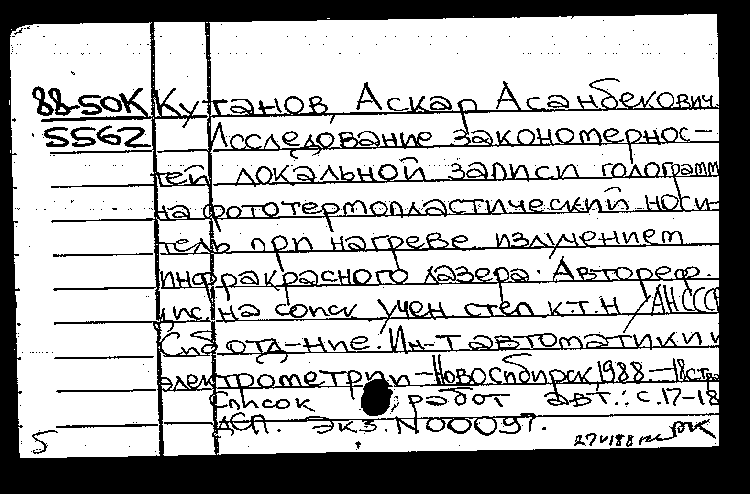 88-50К Кутанов, Аскар Асанбекович.
5562 Исследование закономернос-
тей локальной записи голограмм
на фототермопластический носи-
тель при нагреве излучением
инфракрасного лазера. Автореф.
дис. на соиск учен степ к.т.н /АН СССР
Сиб отд-ние. Ин-т автоматики и
электрометрии - Новосибирск, 1988 - 18 стр
Список работ авт.: с. 17-18
ДЕП. экз. N00097.
5